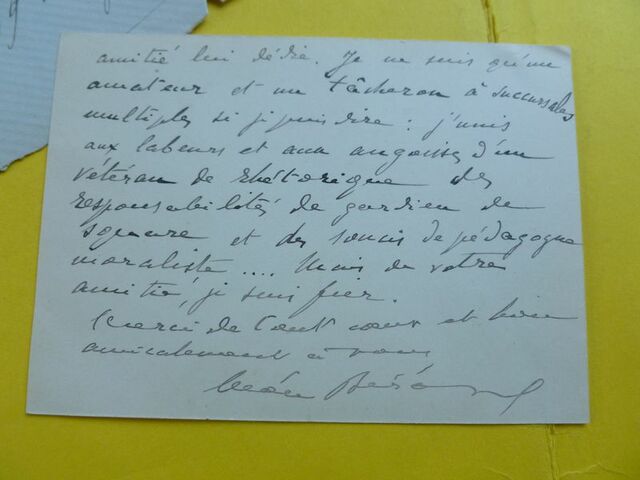 amitié lui dédie. Je ne suis qu'un
amateur et un tâcheron à succursales
multiples si j'puis dire : j'unis
aux labeurs et aux angoisses d'un
vétéran de rhétorique des
responsabilités de gardien de
square et des soucis de pédagogue
moraliste .... Mais de votre
amitié, j'suis fier.
Merci de tout cœur et bien
amicalement à vous
Léon Bérard